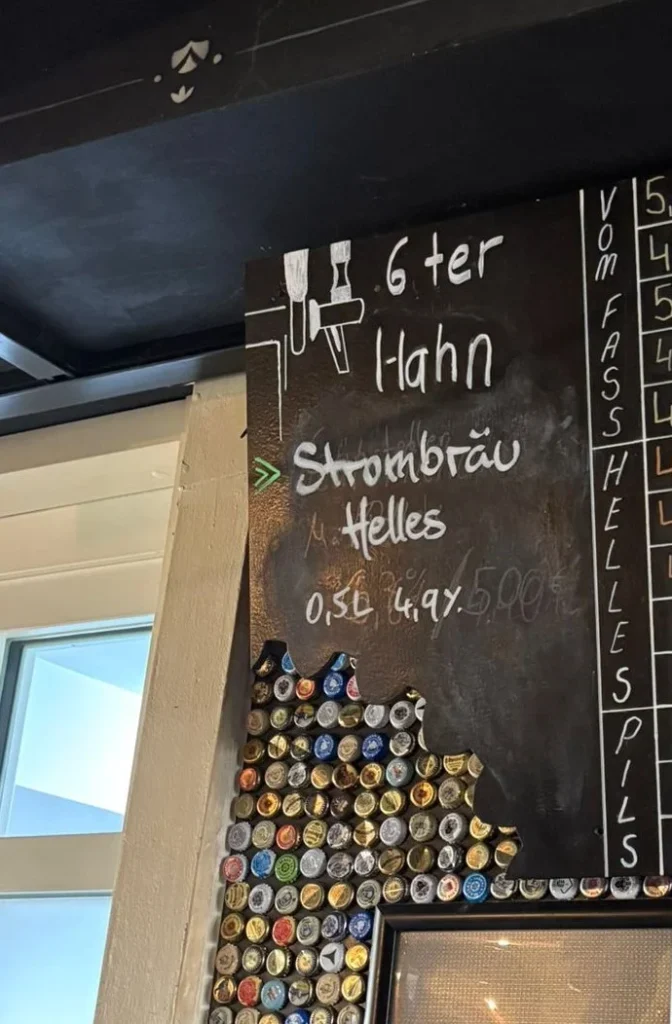 6ter
Hahn
Strombräu
Helles
0,5L 4,9%
VOM FASS
HELLES
PILS